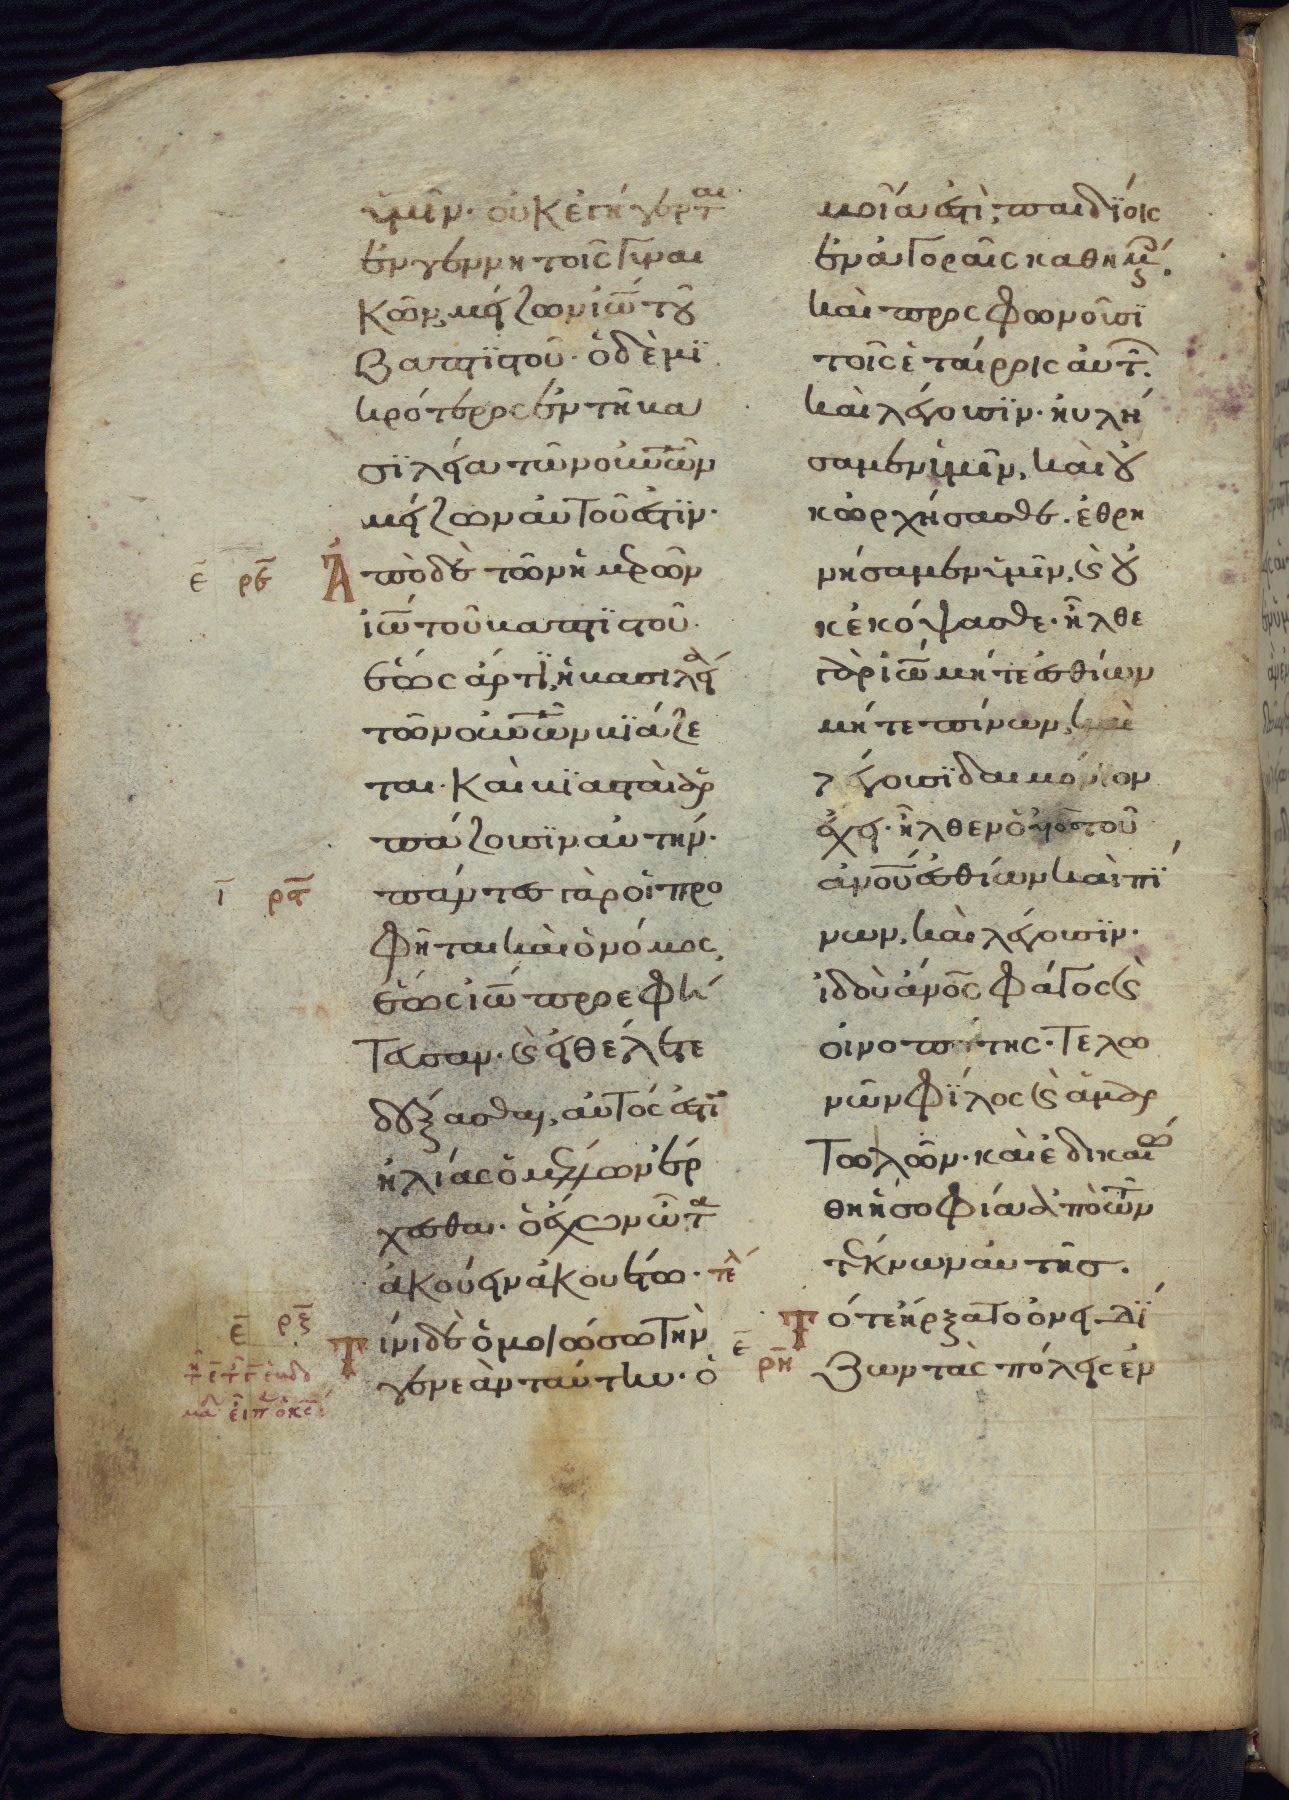 ὑμῖν· οὐκ ἐγήγερται
ἐν γεννητοῖς γυναι
κῶν, μείζων ἰω̅ τοῦ
βαπτιστοῦ· ὁ δὲ μι
κρότερος ἐν τῆ βα
σιλεία τῶν οὐν̅ῶν
μείζων αὐτοῦ ἐστιν·
Ἀπὸ δὲ τῶν ἡμερῶν
ἰω̅ τοῦ βαπτιστοῦ
ἕως ἄρτι, ἡ βασιλεία
τῶν οὐν̅ῶν βιάζε
ται· καὶ βιασταὶ ἁρ
πάζουσιν αὐτήν·
πάντες γὰρ οἱ προ
φῆται καὶ ὁ νόμος,
ἕως ἰω̅ προεφή
τευσαν· ϗ εἰ θέλετε
δέξασθαι, αὐτός ἐστιν
ἠλίας ὁ μέλλων ἔρ
χεσθαι· ὁ ἔχων ὦτα
ἀκούειν ἀκουέτω· τελ
Τίνι δὲ ὁμοιώσω τὴν
γενεὰν ταύτην· ὁ
μοία ἐστὶ, παιδίοις
ἐν ἀγοραῖς καθημένοις·
καὶ προσφωνοῦσι
τοῖς ἑταίροις αὐτῶν·
καὶ λέγουσιν· ηὐλή
σαμεν ὑμῖν, καὶ οὐ
κ ὠρχήσασθε· ἐθρη
νήσαμεν ὑμῖν, ϗ οὐ
κ ἐκόψασθε· ἦλθε
γὰρ ἰω̅ μήτε ἐσθίων
μήτε πίνων, καὶ
λέγουσι δαιμόνιον
ἔχει· ἦλθεν ὁ υἱὸς τοῦ
ἀνου̅ ἐσθίων καὶ πί
νων, καὶ λέγουσιν·
ἰδοὺ ἄνος̅ φάγος ϗ
οἰνοπότης· τελω
νῶν φίλος ϗ ἁμαρ
τωλῶν· καὶ ἐδικαιώ
θη ἡ σοφία ἀπὸ τῶν
τέκνων αὐτῆς.
Τότε ἤρξατο ὀνειδί
ζειν τὰς πόλεις ἐν